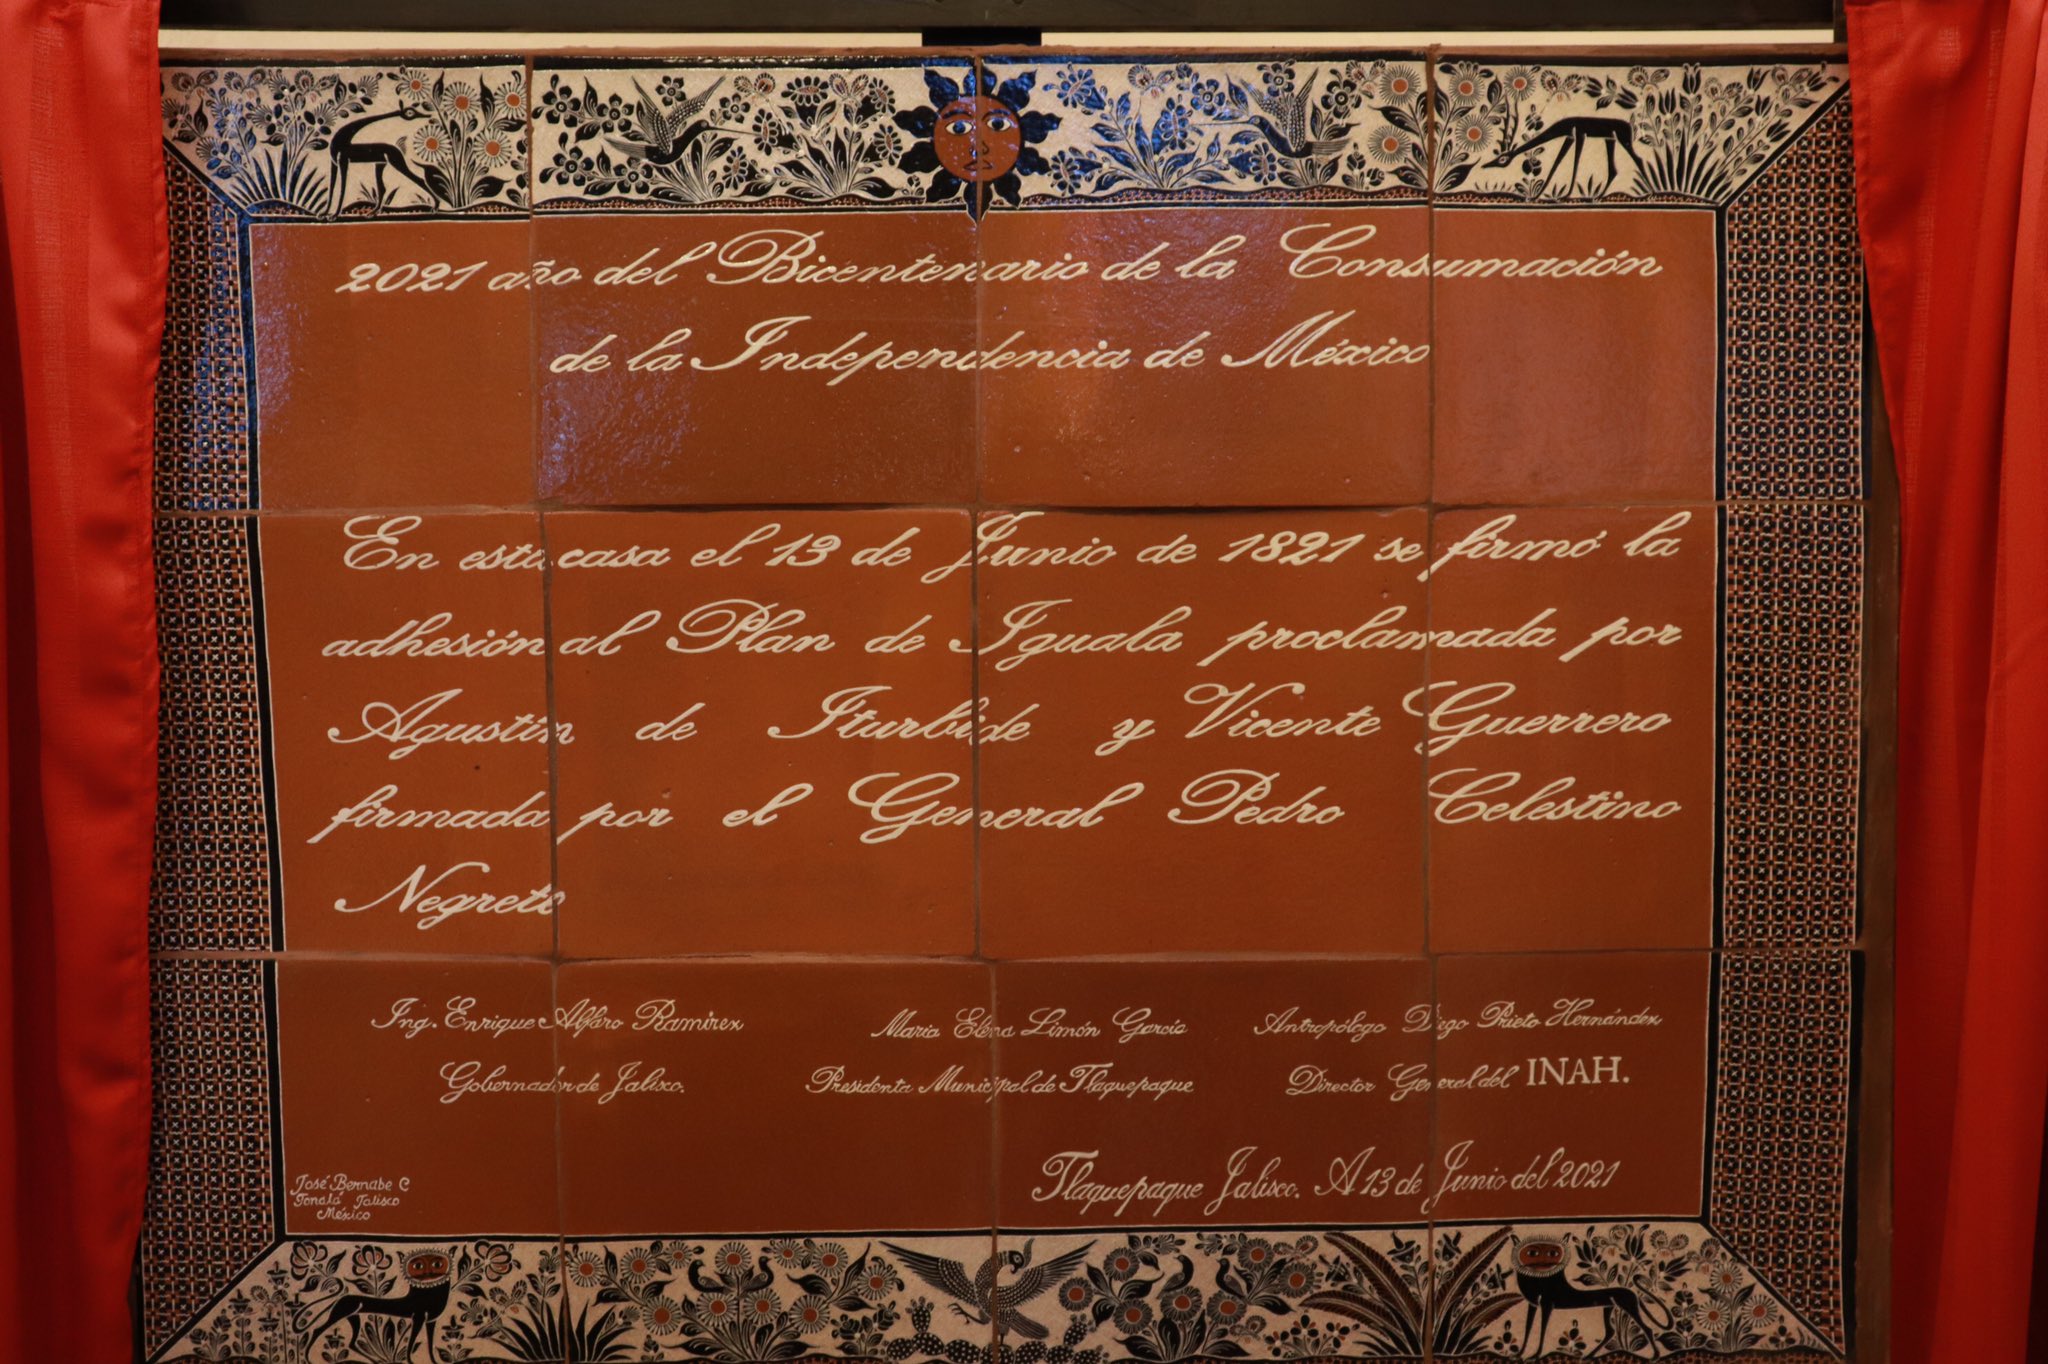 2021 año del Bicentenario de la Consumación
de la Independencia de México
En esta casa el 13 de Junio de 1821 se firmó la
adhesión al Plan de Iguala proclamada por
Agustín de Iturbide y Vicente Guerrero
firmada por el General Pedro Celestino
Negrete
Ing. Enrique Alfaro Ramírez
Gobernador de Jalisco.
María Elena Limón García
Presidenta Municipal de Tlaquepaque
Antropólogo Diego Prieto Hernández
Director General del INAH.
Tlaquepaque Jalisco. A 13 de Junio del 2021
José Bernabe C
Tonalá Jalisco
México